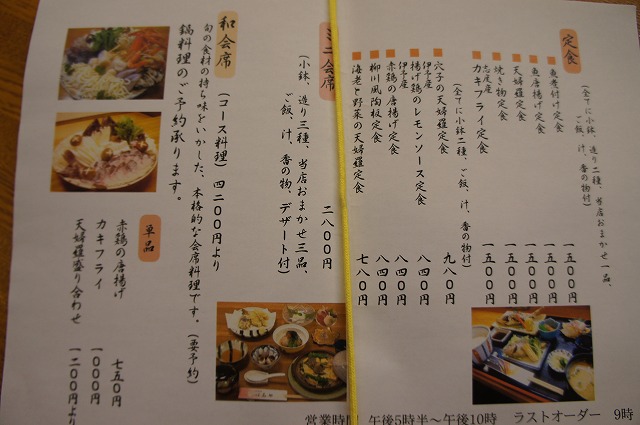 定食
(全てに小鉢、造り二種、当店おまかせ一品、
ご飯、汁、香の物付)
魚煮付け定食 一五〇〇円
魚唐揚げ定食 一五〇〇円
天婦羅定食 一五〇〇円
焼き物定食 一五〇〇円
志度産
カキフライ定食 一五〇〇円
(全てに小鉢二種、ご飯、汁、香の物付)
穴子の天婦羅定食 九八〇円
伊予産
揚げ鶏のレモンソース定食 八四〇円
伊予産
赤鶏の唐揚げ定食 八四〇円
柳川風陶板定食 八四〇円
海老と野菜の天婦羅定食 七八〇円
ミニ会席 二八〇〇円
(小鉢、造り三種、当店おまかせ三品、
ご飯、汁、香の物、デザート付)
和会席 (コース料理) 四二〇〇円より
旬の食材の持ち味をいかした、本格的な会席料理です。(要予約)
鍋料理のご予約承ります。
単品
赤鶏の唐揚げ 七五〇円
カキフライ 一〇〇〇円
天婦羅盛り合わせ 一二〇〇円より
営業時間 午後5時半〜午後10時 ラストオーダー 9時